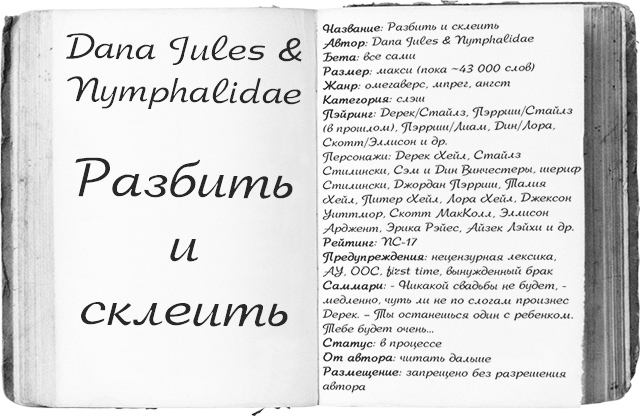 Dana Jules &
Nymphalidae
Разбить
и
склеить
Название: Разбить и склеить
Автор: Dana Jules & Nymphalidae
Бета: все сами
Размер: макси (пока ~43 000 слов)
Жанр: омегаверс, мпрег, ангст
Категория: слэш
Пэйринг: Дерек/Стайлз, Пэрриш/Стайлз
(в прошлом), Пэрриш/Лиам, Дин/Лора,
Скотт/Эллисон и др.
Персонажи: Дерек Хейл, Стайлз
Стилински, Сэм и Дин Винчестеры, шериф
Стилински, Джордан Пэрриш, Талия
Хейл, Питер Хейл, Лора Хейл, Джексон
Уиттмор, Скотт МакКолл, Эллисон
Арджент, Эрика Рэйес, Айзек Лэйхи и др.
Рейтинг: NC-17
Предупреждения: нецензурная лексика,
АУ, ООС, first time, вынужденный брак
Саммари: - Никакой свадьбы не будет, -
медленно, чуть ли не по слогам произнес
Дерек. – Ты останешься один с ребенком.
Тебе будет очень...
Статус: в процессе
От автора: читать дальше
Размещение: запрещено без разрешения
автора